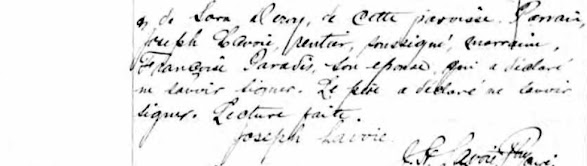 & de Sara Leroy, de cette paroisse. Parrain,
Joseph Lavoie, rentier, soussigné, marraine,
Françoise Paradis, son épouse, qui a déclaré
ne savoir signer. Le père a déclaré ne savoir
signer. Lecture faite.
Joseph Lavoie
Lavoie Ptre